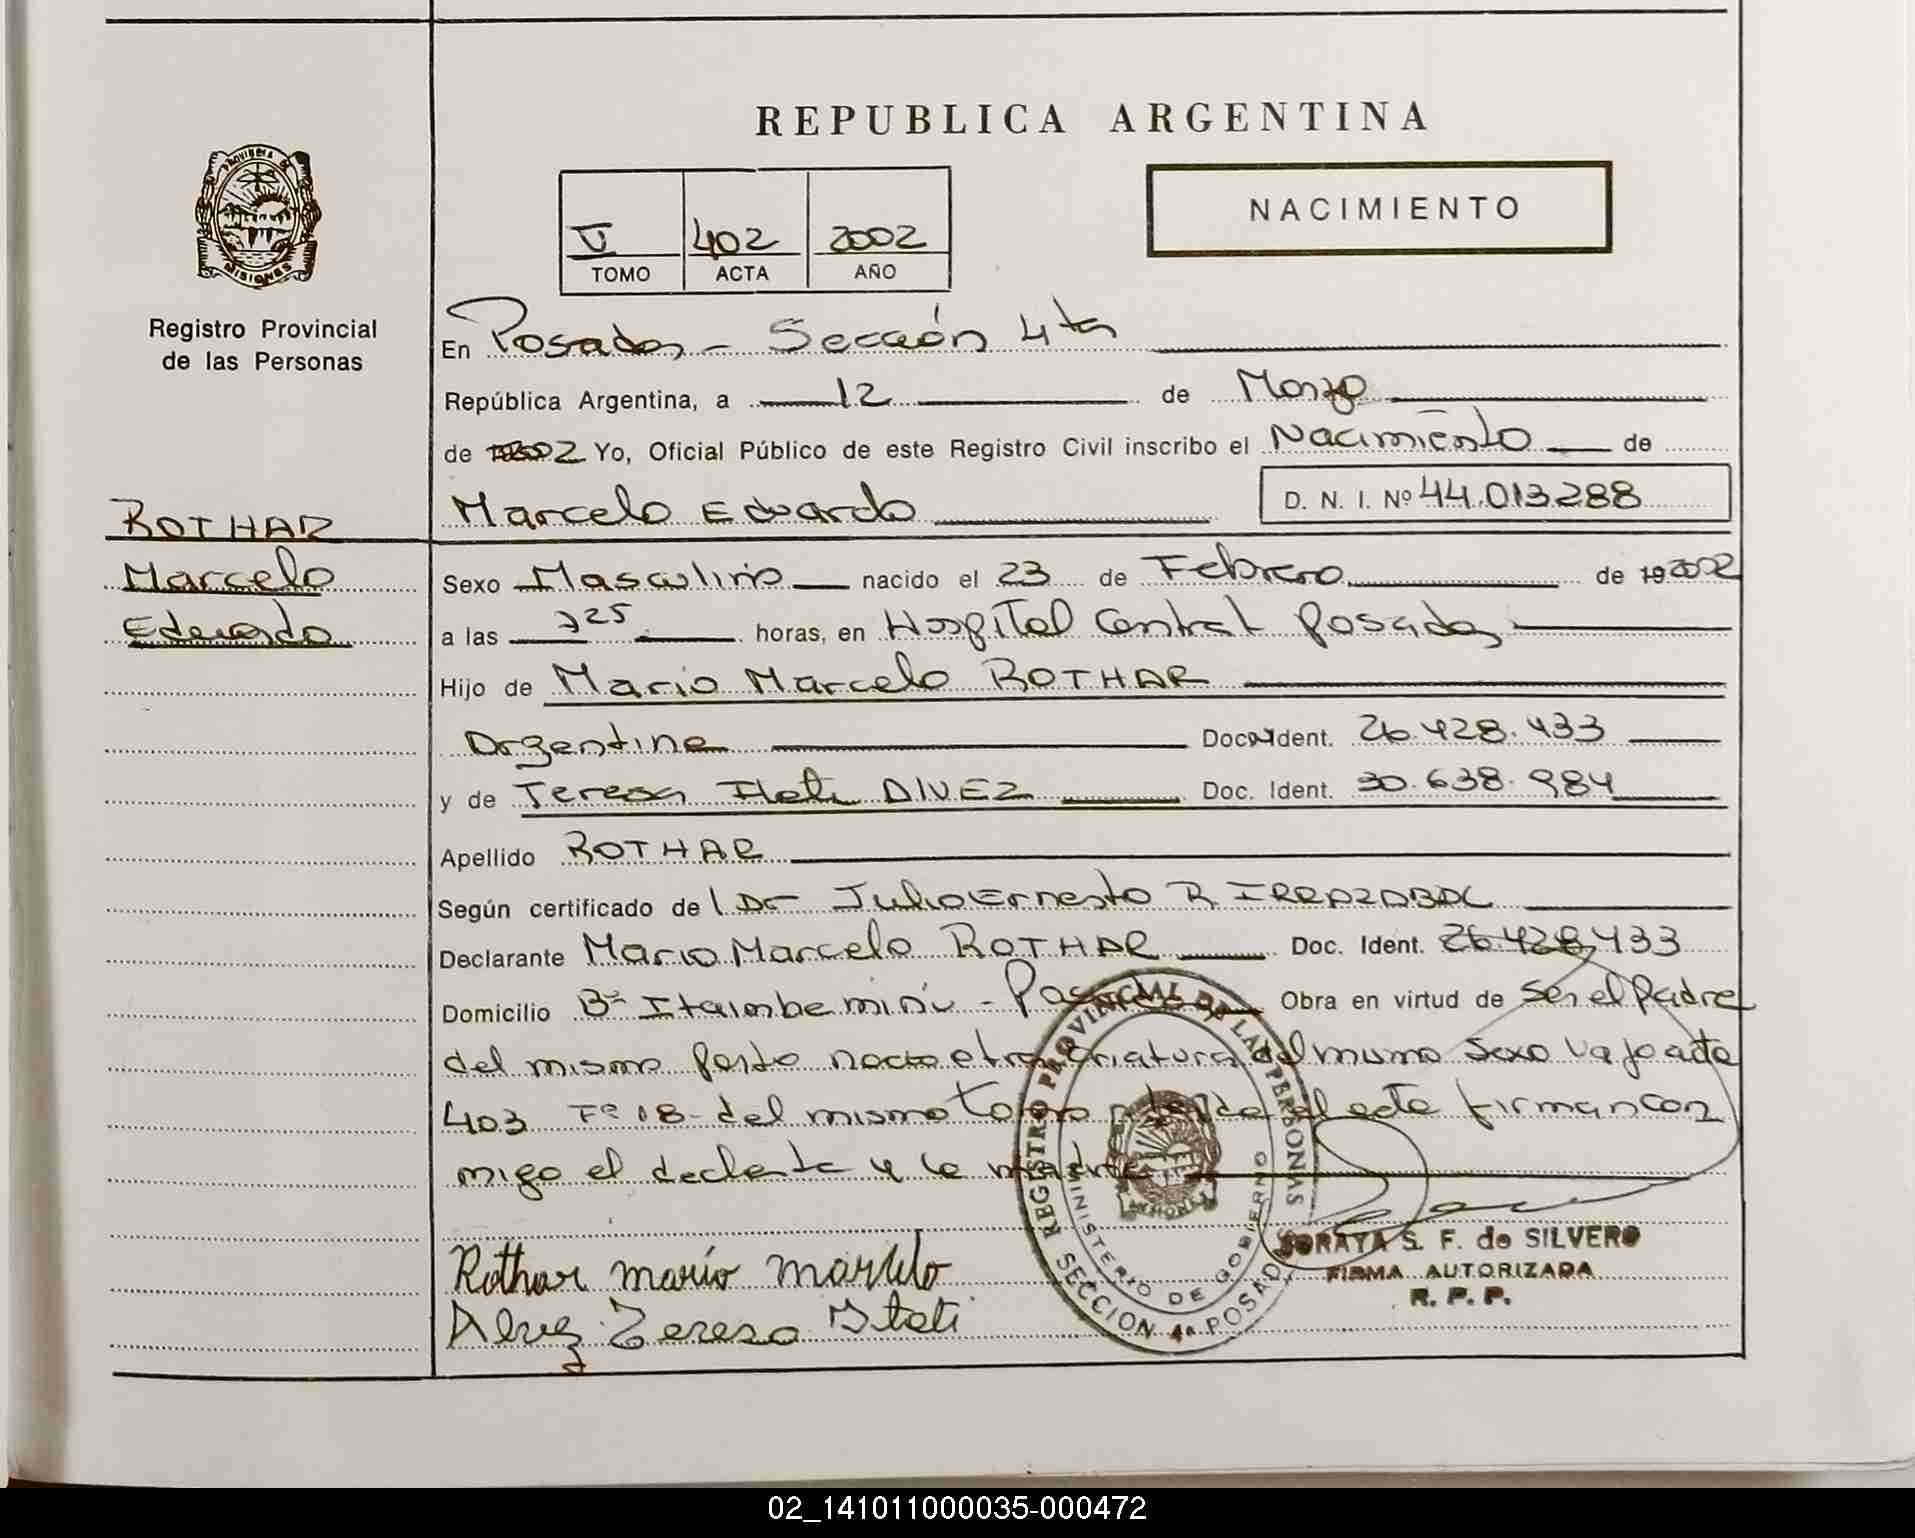 REPUBLICA ARGENTINA
PROVINCIA DE
MISIONES
NACIMIENTO
V 402 2002
TOMO ACTA AÑO
Registro Provincial
de las Personas
En Posadas - Sección 4ta
República Argentina, a 12 de Marzo
de 2002 Yo, Oficial Público de este Registro Civil inscribo el Nacimiento de
Marcelo Eduardo D. N. I. Nº 44.013.288
ROTHAR
Marcelo
Eduardo
Sexo Masculino nacido el 23 de Febrero de 19 2002
a las 725 horas, en Hospital Central Posadas
Hijo de Mario Marcelo ROTHAR
Argentino Doc. Ident. 26.428.433
y de Teresa Itati ALVEZ Doc. Ident. 30.638.984
Apellido ROTHAR
Según certificado de Dr Julio Ernesto R IRRAZABAL
Declarante Mario Marcelo ROTHAR Doc. Ident. 26.428.433
Domicilio Bº Itaimbe mini - Posadas Obra en virtud de ser el padre
del mismo parto nacio otra criatura del mismo sexo vajo acta
403 Fº 18 del mismo tomo el acta firman con
migo el y la madre
Rothar mario marcelo
Alvez Teresa Itati
REGISTRO PROVINCIAL DE LAS PERSONAS
MINISTERIO DE GOBIERNO
SECCION 4a POSADAS
SORAYA S. F. de SILVERO
FIRMA AUTORIZADA
R. P. P.
02_141011000035-000472